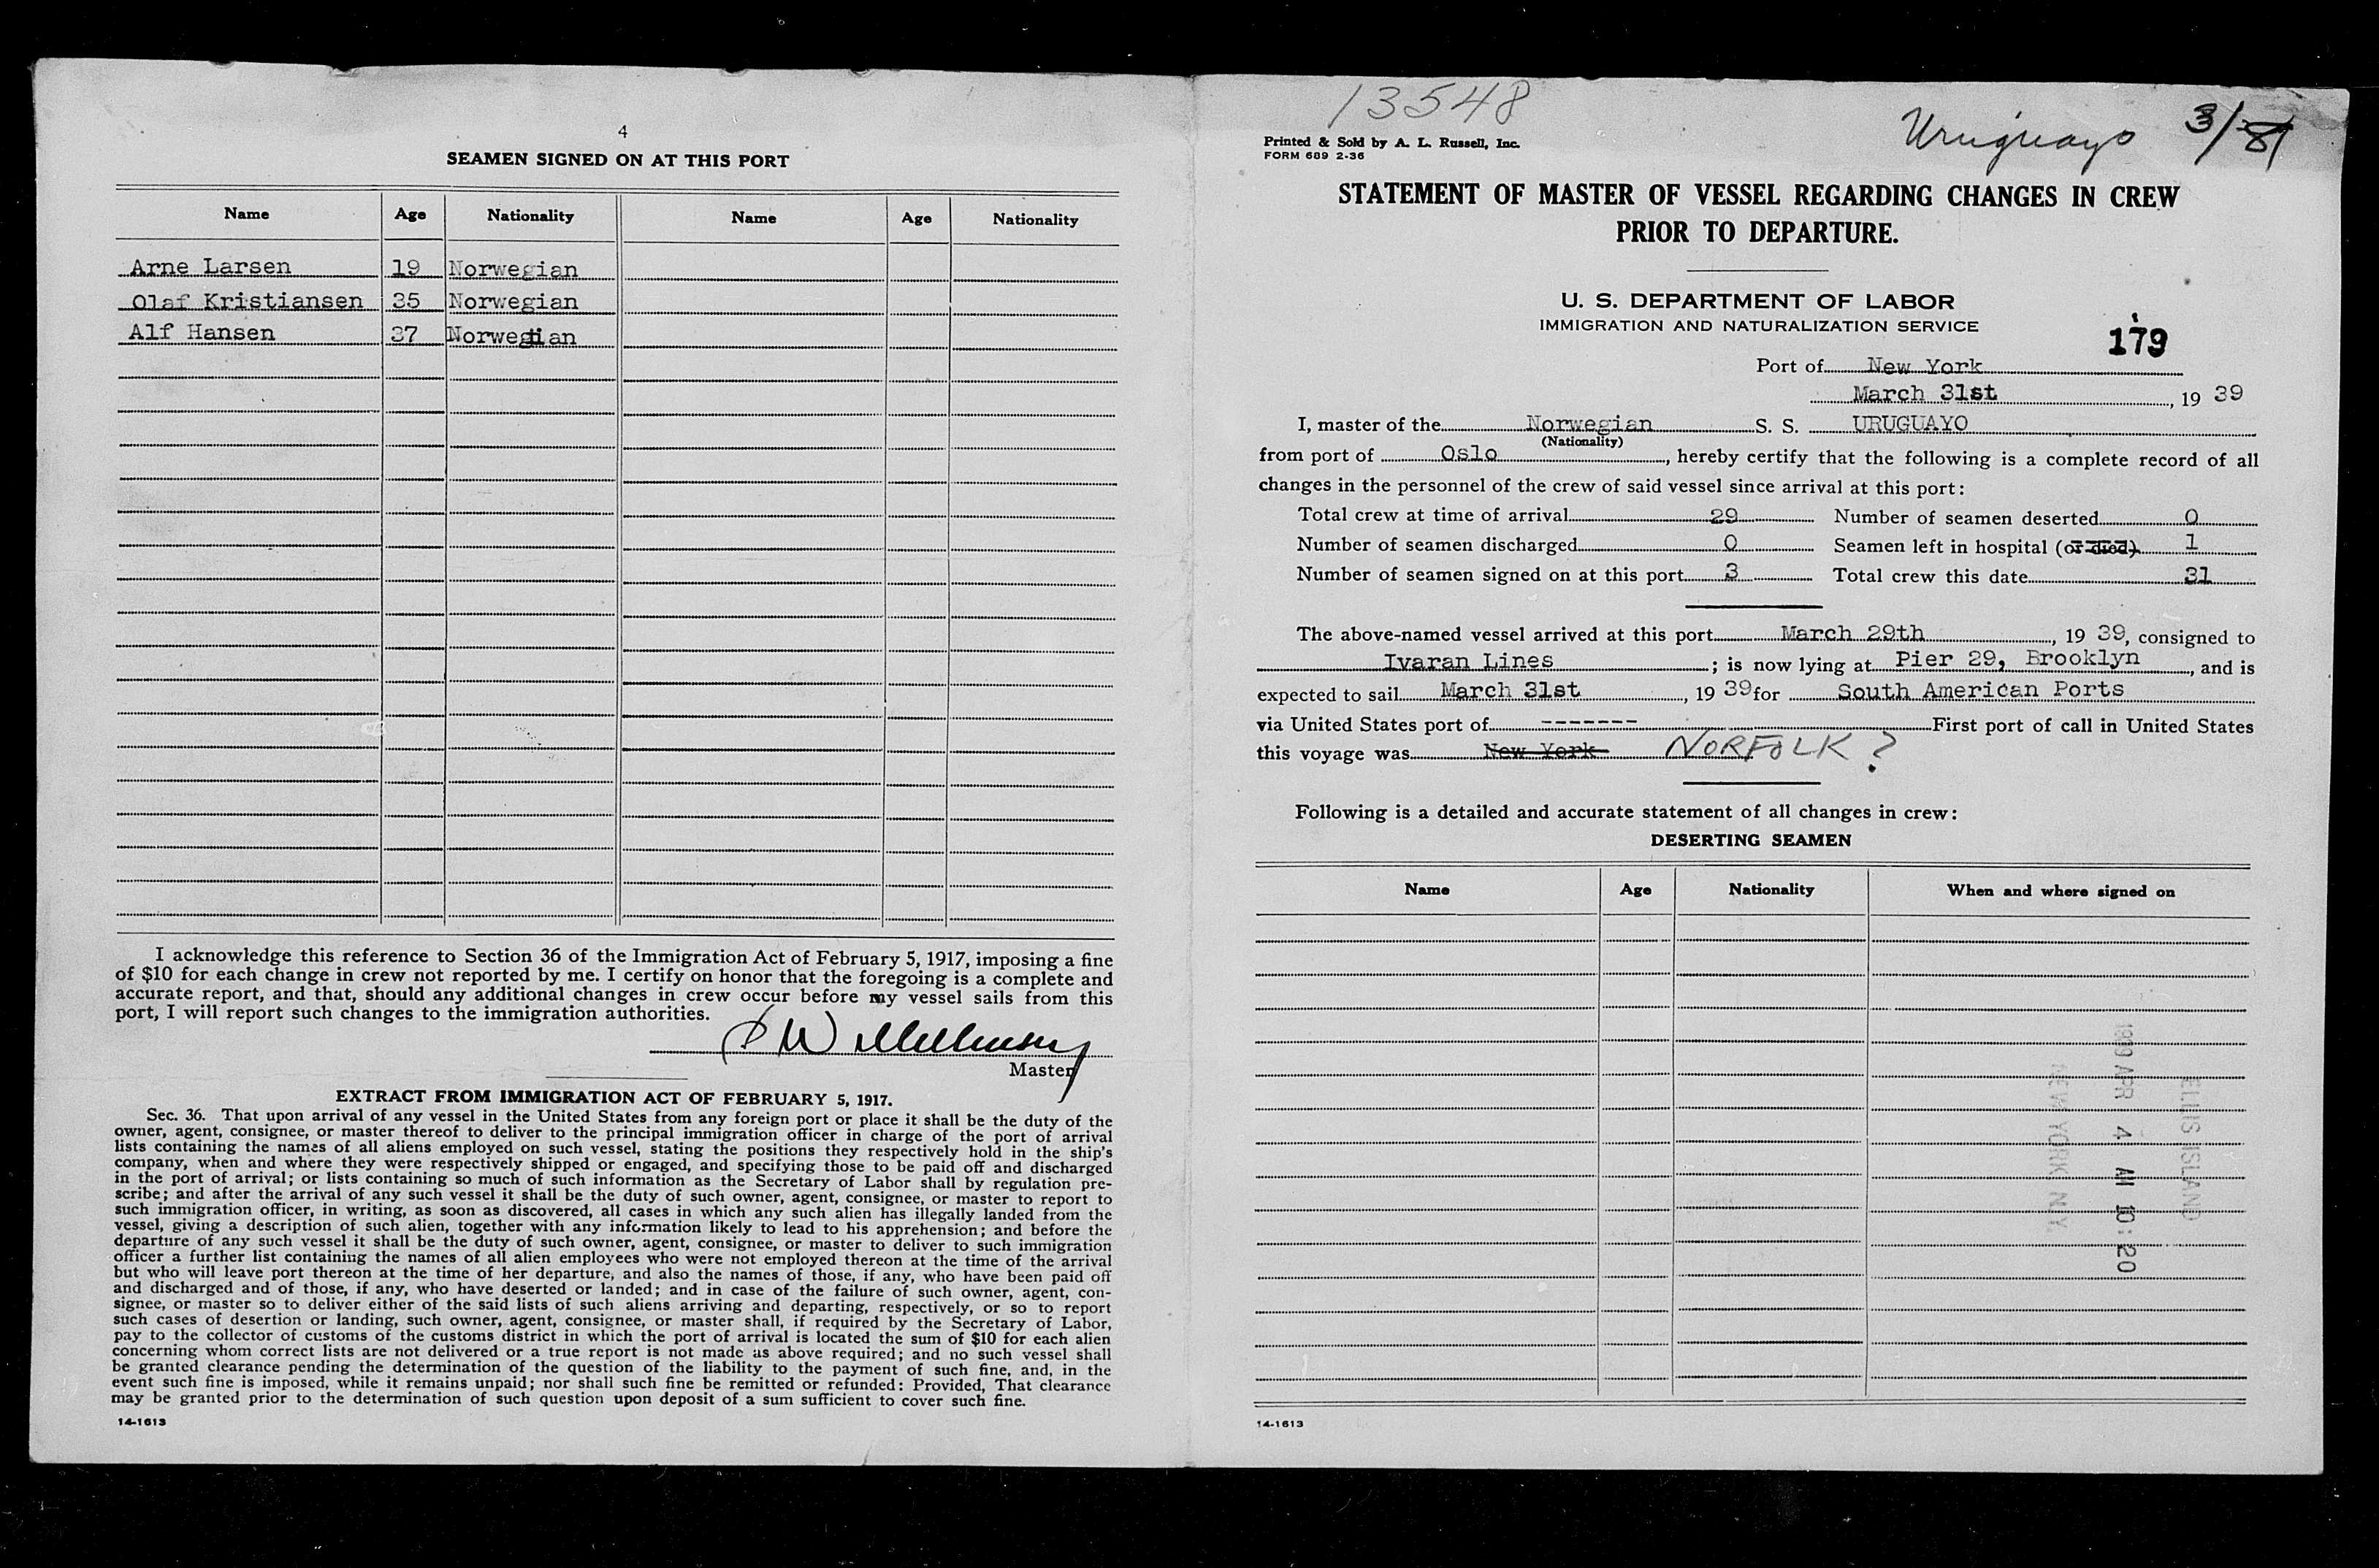 4
SEAMEN SIGNED ON AT THIS PORT
Name Age Nationality Name Age Nationality
Arne Larsen 19 Norwegian
Olaf Kristiansen 35 Norwegian
Alf Hansen 37 Norwegian
I acknowledge this reference to Section 36 of the Immigration Act of February 5, 1917, imposing a fine
of $10 for each change in crew not reported by me. I certify on honor that the foregoing is a complete and
accurate report, and that, should any additional changes in crew occur before my vessel sails from this
port, I will report such changes to the immigration authorities.
Master
EXTRACT FROM IMMIGRATION ACT OF FEBRUARY 5, 1917.
Sec. 36. That upon arrival of any vessel in the United States from any foreign port or place it shall be the duty of the
owner, agent, consignee, or master thereof to deliver to the principal immigration officer in charge of the port of arrival
lists containing the names of all aliens employed on such vessel, stating the positions they respectively hold in the ship's
company, when and where they were respectively shipped or engaged, and specifying those to be paid off and discharged
in the port of arrival; or lists containing so much of such information as the Secretary of Labor shall by regulation pre-
scribe; and after the arrival of any such vessel it shall be the duty of such owner, agent, consignee, or master to report to
such immigration officer, in writing, as soon as discovered, all cases in which any such alien has illegally landed from the
vessel, giving a description of such alien, together with any information likely to lead to his apprehension; and before the
departure of any such vessel it shall be the duty of such owner, agent, consignee, or master to deliver to such immigration
officer a further list containing the names of all alien employees who were not employed thereon at the time of the arrival
but who will leave port thereon at the time of her departure, and also the names of those, if any, who have been paid off
and discharged and of those, if any, who have deserted or landed; and in case of the failure of such owner, agent, con-
signee, or master so to deliver either of the said lists of such aliens arriving and departing, respectively, or so to report
such cases of desertion or landing, such owner, agent, consignee, or master shall, if required by the Secretary of Labor,
pay to the collector of customs of the customs district in which the port of arrival is located the sum of $10 for each alien
concerning whom correct lists are not delivered or a true report is not made as above required; and no such vessel shall
be granted clearance pending the determination of the question of the liability to the payment of such fine, and, in the
event such fine is imposed, while it remains unpaid; nor shall such fine be remitted or refunded: Provided, That clearance
may be granted prior to the determination of such question upon deposit of a sum sufficient to cover such fine.
14-1613
13548
Uruguayo
Printed & Sold by A. L. Russell, Inc.
FORM 689 2-36
STATEMENT OF MASTER OF VESSEL REGARDING CHANGES IN CREW
PRIOR TO DEPARTURE.
U. S. DEPARTMENT OF LABOR
IMMIGRATION AND NATURALIZATION SERVICE
179
Port of New York
March 31st, 19 39
I, master of the Norwegian S. S. URUGUAYO
(Nationality)
from port of Oslo, hereby certify that the following is a complete record of all
changes in the personnel of the crew of said vessel since arrival at this port:
Total crew at time of arrival 29 Number of seamen deserted 0
Number of seamen discharged 0 Seamen left in hospital (or died) 1
Number of seamen signed on at this port 3 Total crew this date 31
The above-named vessel arrived at this port March 29th, 19 39, consigned to
Ivaran Lines; is now lying at Pier 29, Brooklyn, and is
expected to sail March 31st, 19 39 for South American Ports
via United States port of ------- First port of call in United States
this voyage was New York NORFOLK ?
Following is a detailed and accurate statement of all changes in crew:
DESERTING SEAMEN
Name Age Nationality When and where signed on
ELLIS ISLAND
1939 APR 4 AM 10:20
NEW YORK N.Y.
14-1613